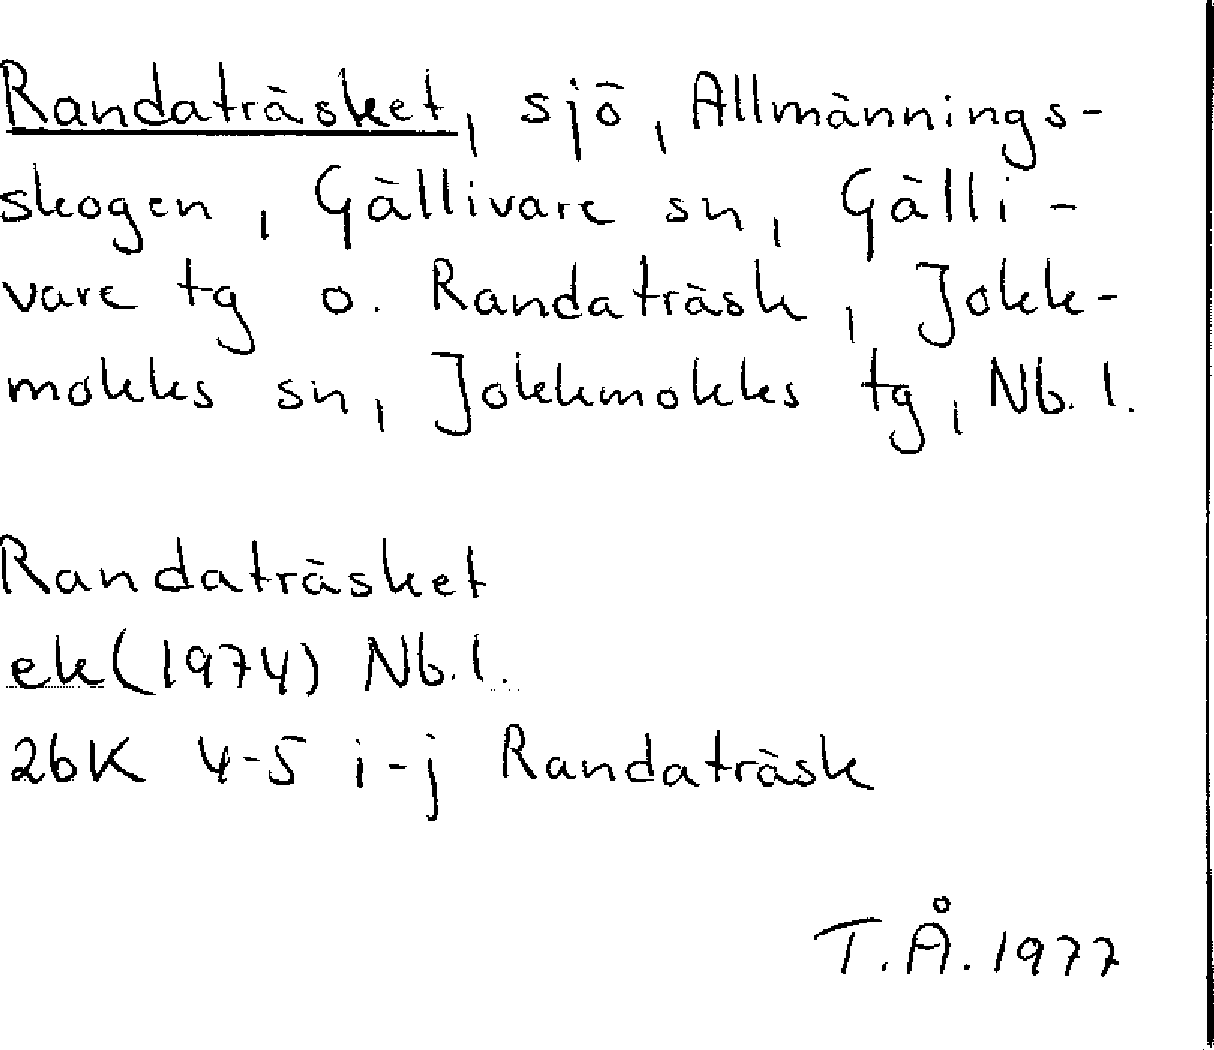 Randaträsket, sjö, Allmännings-
skogen, Gällivare sn, Gälli-
vare tg o. Randaträsk, Jokk-
mokks sn, Jokkmokks tg, Nb. l.
Randaträsket
ek (1974) Nb. l.
26K 4-5 i-j Randaträsk
T.Å. 1977